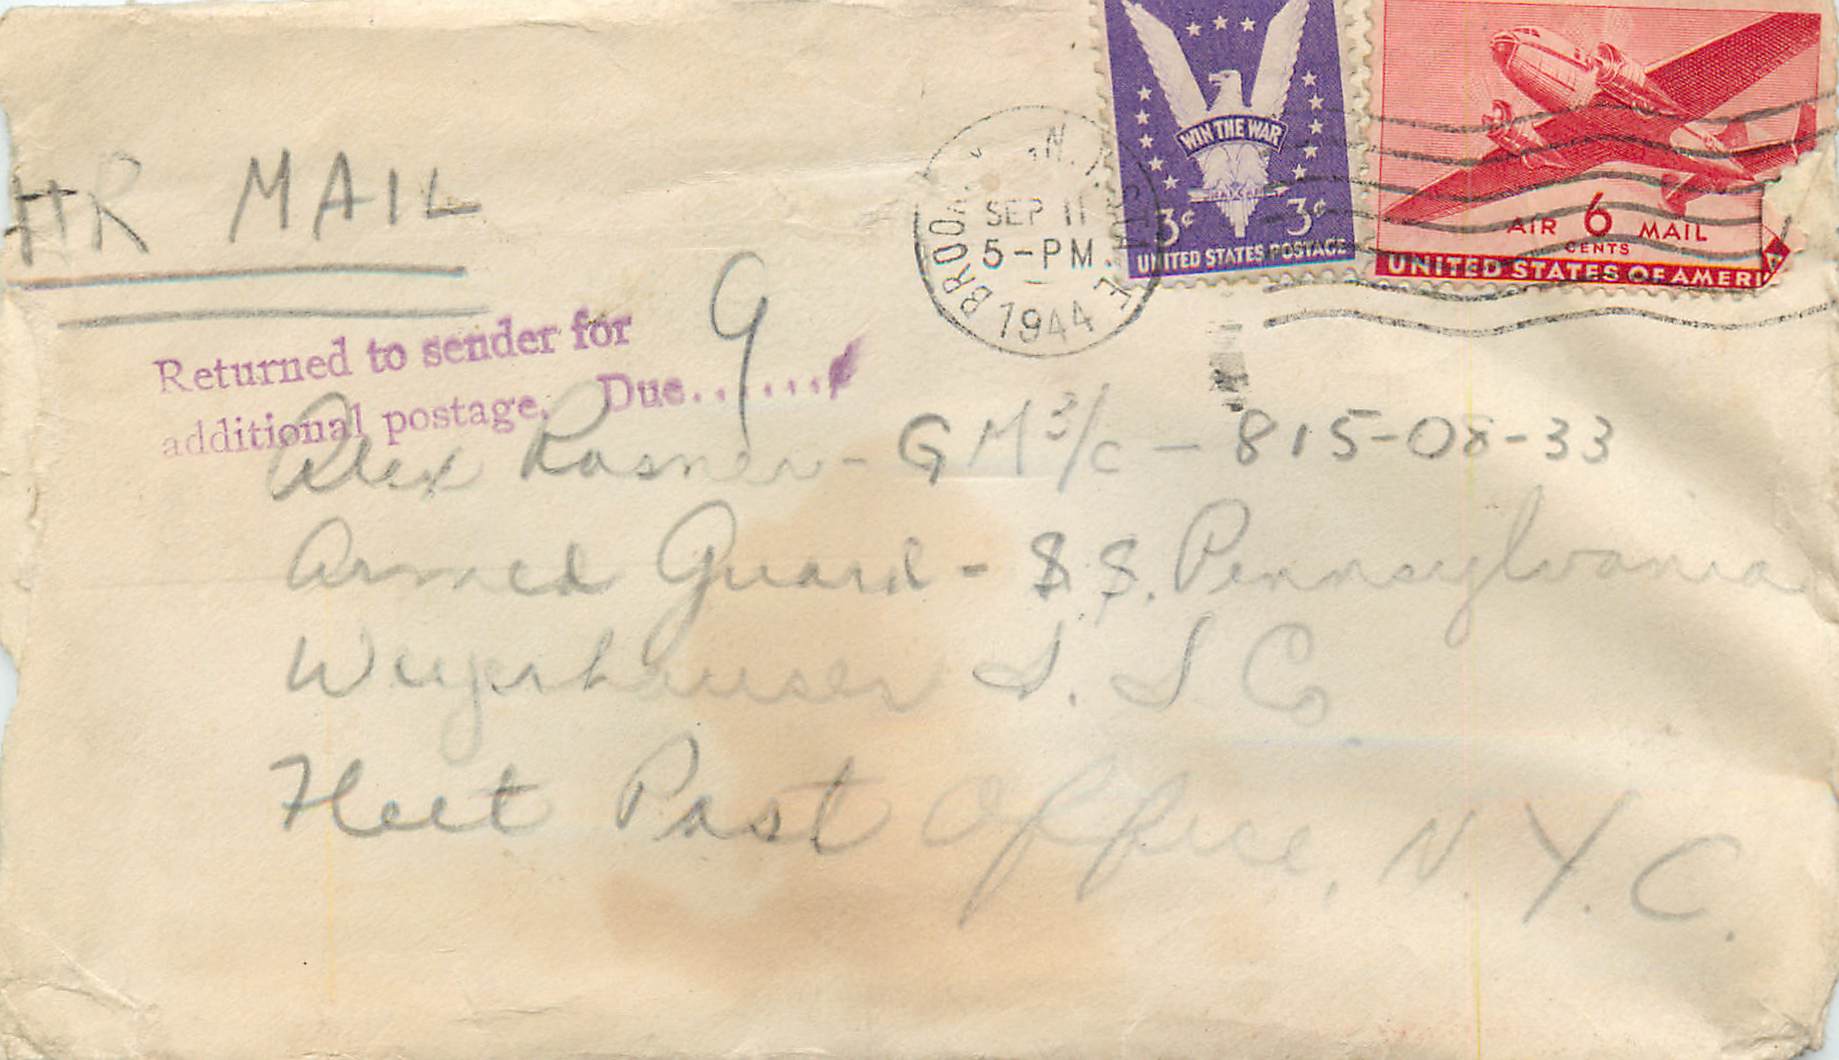 WIN THE WAR
3¢ 3¢
UNITED STATES POSTAGE
AIR 6 MAIL
CENTS
UNITED STATES OF AMERI
SEP 11
5-PM
1944
AIR MAIL
Returned to sender for
additional postage. Due......
9
Alex Rosner - GM 3/c - 815-08-33
Armed Guard - S.S. Pennsylvania
Weyerhauser S. S Co
Fleet Post Office, N.Y.C.